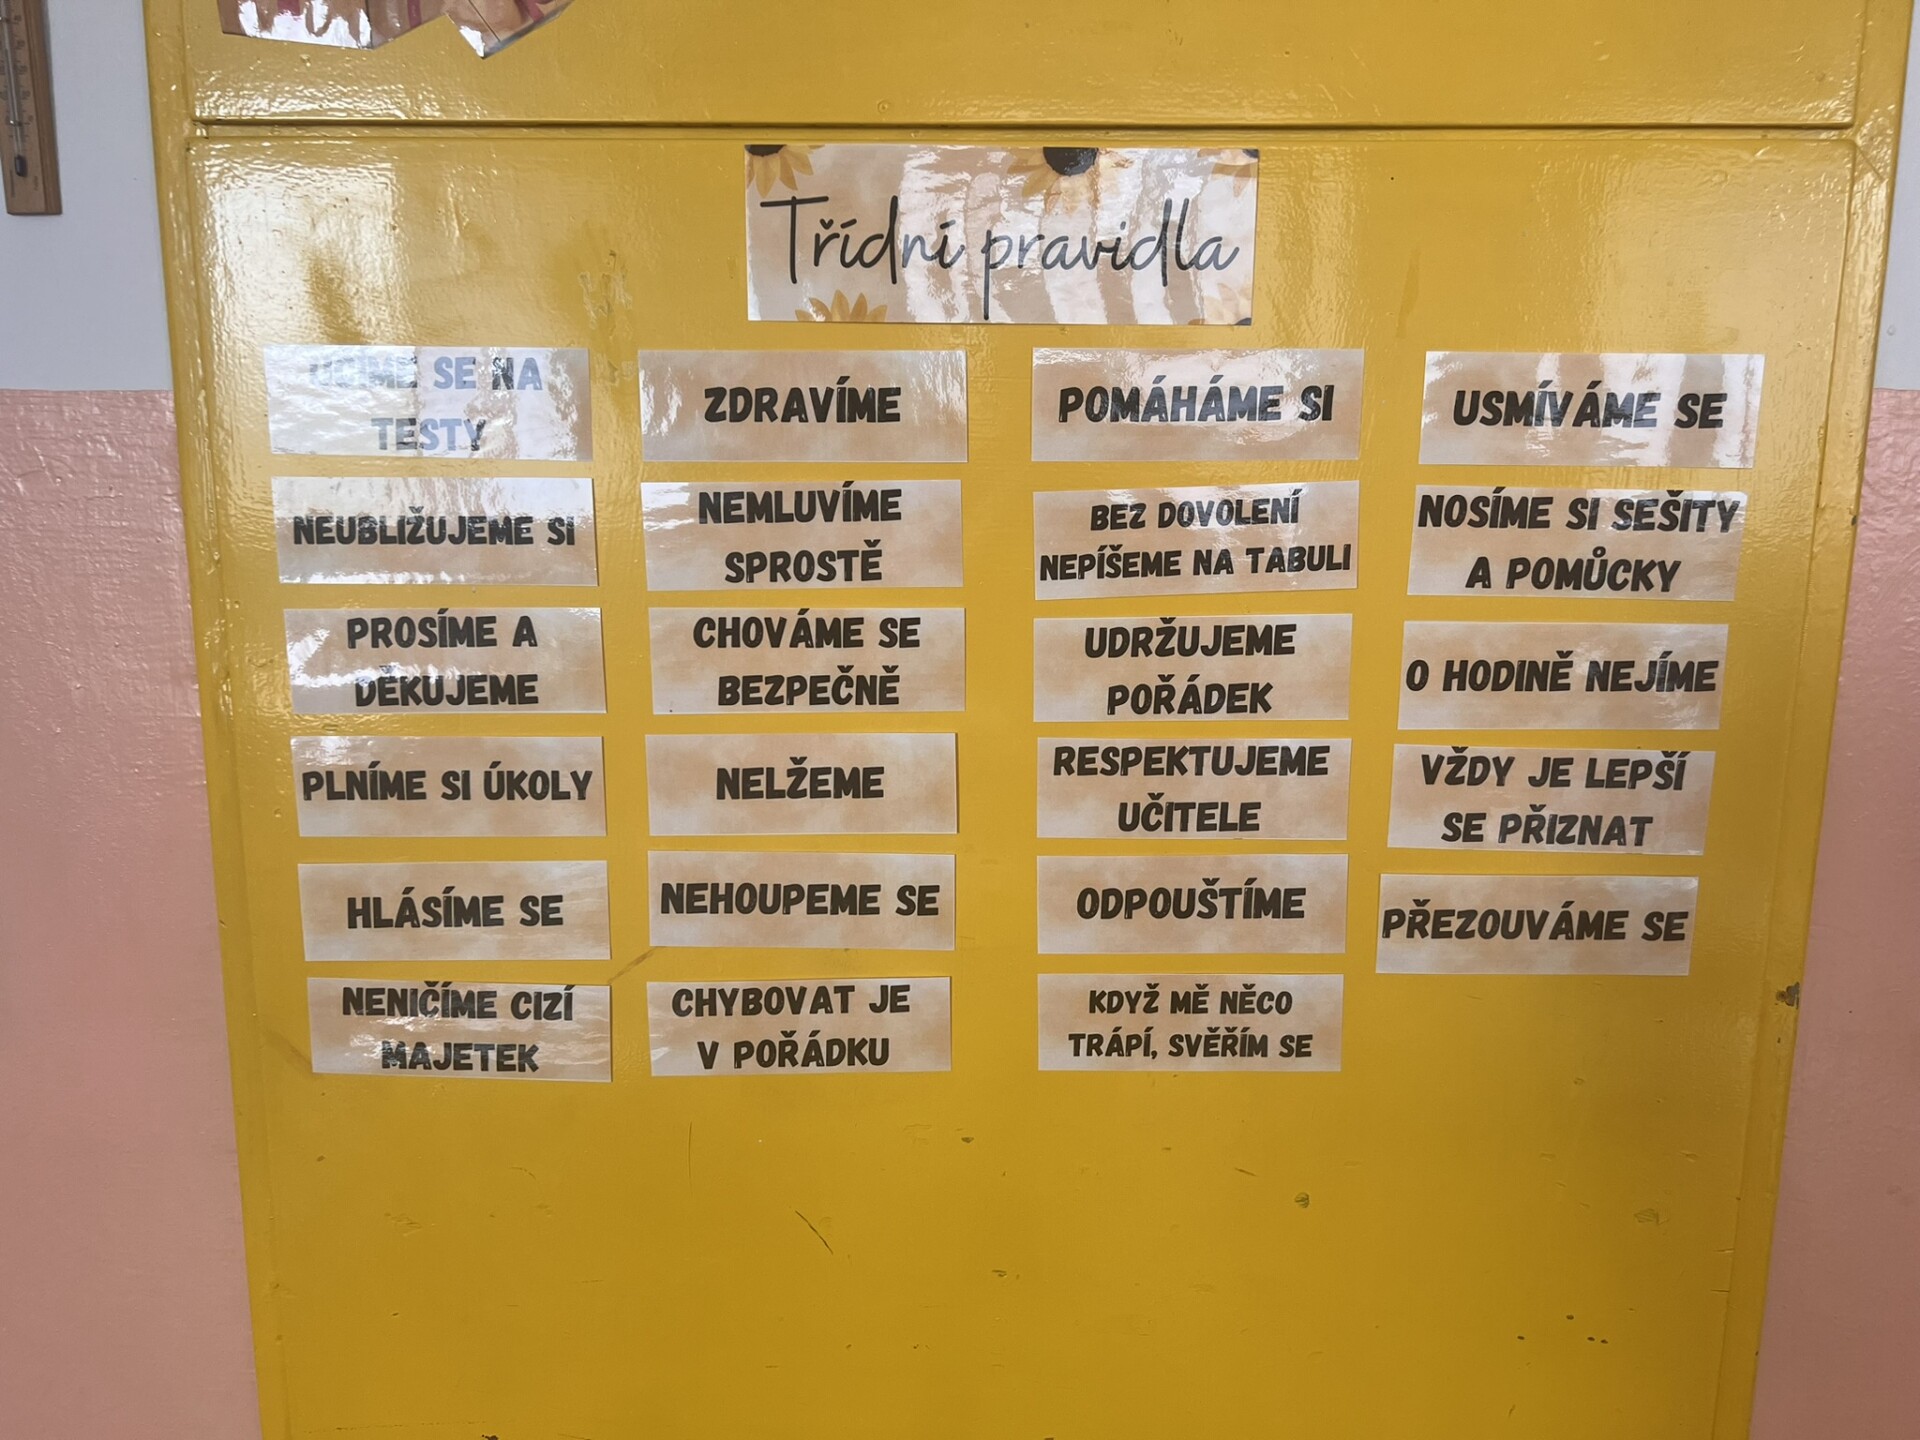 Třídní pravidla
UČÍME SE NA
TESTY
ZDRAVÍME
POMÁHÁME SI
USMÍVÁME SE
NEUBLIŽUJEME SI
NEMLUVÍME
SPROSTĚ
BEZ DOVOLENÍ
NEPÍŠEME NA TABULI
NOSÍME SI SEŠITY
A POMŮCKY
PROSÍME A
DĚKUJEME
CHOVÁME SE
BEZPEČNĚ
UDRŽUJEME
POŘÁDEK
O HODINĚ NEJÍME
PLNÍME SI ÚKOLY
NELŽEME
RESPEKTUJEME
UČITELE
VŽDY JE LEPŠÍ
SE PŘIZNAT
HLÁSÍME SE
NEHOUPEME SE
ODPOUŠTÍME
PŘEZOUVÁME SE
NENIČÍME CIZÍ
MAJETEK
CHYBOVAT JE
V POŘÁDKU
KDYŽ MĚ NĚCO
TRÁPÍ, SVĚŘÍM SE